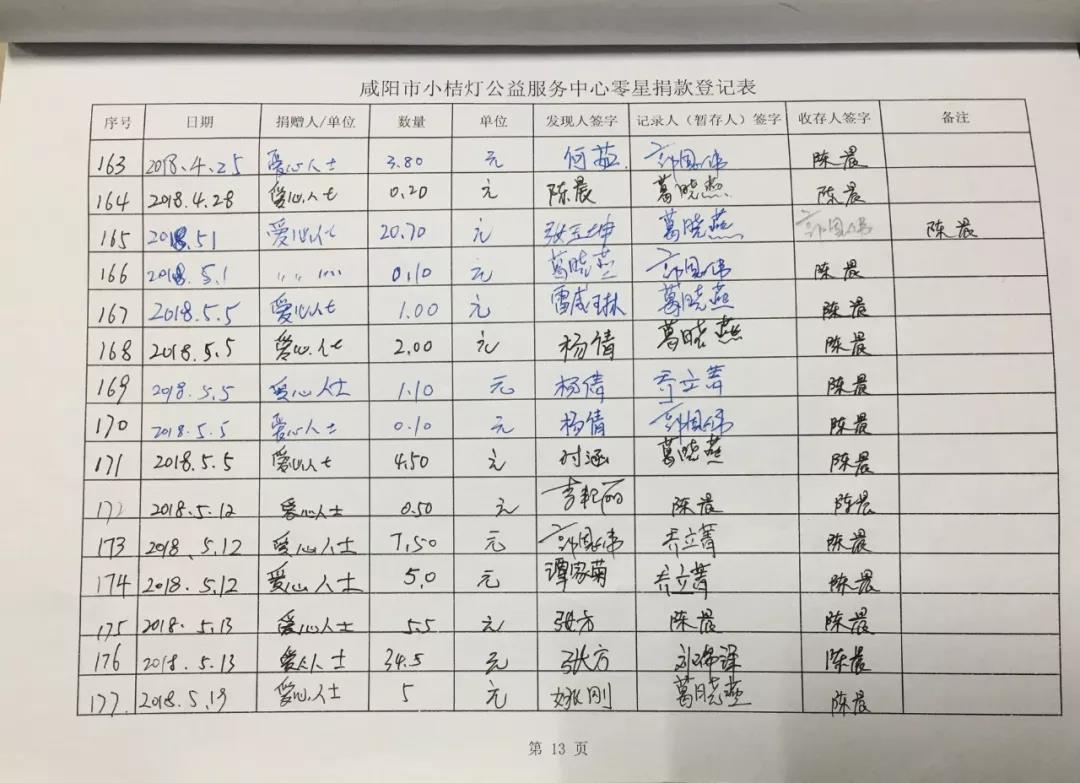 咸阳市小桔灯公益服务中心零星捐款登记表
序号 日期 捐赠人/单位 数量 单位 发现人签字 记录人（暂存人）签字 收存人签字 备注
163 2018.4.25 爱心人士 3.80 元 何茹 郭国伟 陈晨
164 2018.4.28 爱心人士 0.20 元 陈晨 葛晓燕 陈晨
165 2018.51 爱心人士 20.70 元 张玉坤 葛晓燕 郭国伟 陈晨
166 2018.5.1 〃 〃 〃〃 0.10 元 葛晓燕 郭国伟 陈晨
167 2018.5.5 爱心人士 1.00 元 雷成琳 葛晓燕 陈晨
168 2018.5.5 爱心人士 2.00 元 杨倩 葛晓燕 陈晨
169 2018.5.5 爱心人士 1.10 元 杨倩 乔立菁 陈晨
170 2018.5.5 爱心人士 0.10 元 杨倩 郭国伟 陈晨
171 2018.5.5 爱心人士 4.50 元 时涵 葛晓燕 陈晨
172 2018.5.12 爱心人士 0.50 元 陈晨 陈晨
173 2018.5.12 爱心人士 7.50 元 郭国伟 乔立菁 陈晨
174 2018.5.12 爱心人士 5.0 元 谭家菊 乔立菁 陈晨
175 2018.5.13 爱心人士 5.5 元 张方 陈晨 陈晨
176 2018.5.13 爱心人士 34.5 元 张方 陈晨
177 2018.5.19 爱心人士 5 元 姚刚 葛晓燕 陈晨
第 13 页